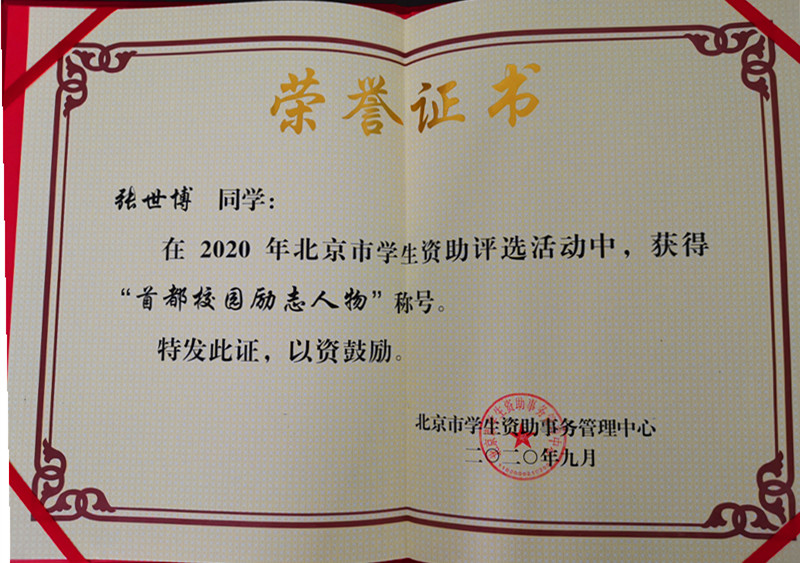 荣誉证书
张世博 同学：
在 2020 年北京市学生资助评选活动中，获得
“首都校园励志人物”称号。
特发此证，以资鼓励。
北京市学生资助事务管理中心
二〇二〇年九月
北京市学生资助事务管理中心